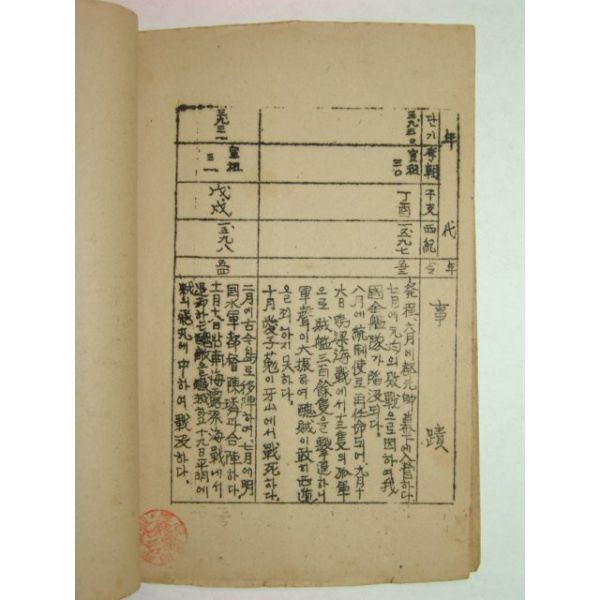 年代
단기 李朝 干支 西紀 年令
事蹟
三九三〇 宣祖三〇 丁酉 一五九七 五三
発程、六月에 都元帥 幕下에 入営하다
七月에 元均의 敗戦으로 因하여 我
國全艦隊가 陷没되다.
八月에 統制使로 再任命되여 九月十
六日 鳴梁海戦에서 十三隻의 孤軍
으로 賊艦三百餘隻을 撃退하니
軍聲이 大振하여 醜賊이 敢히 西進
을 꾀하지 못하다.
十月 愛子葂이 牙山에서 戰死하다.
三九三一 宣祖三一 戊戌 一五九八 五四
二月에 古今島로 移陣하여、七月에 明
国水軍都督 陳璘과 合陣하다.
十一月十九日 南海露梁海戰에서
十九日 平明에
賊의 飛丸에 中하여 戰没하다.